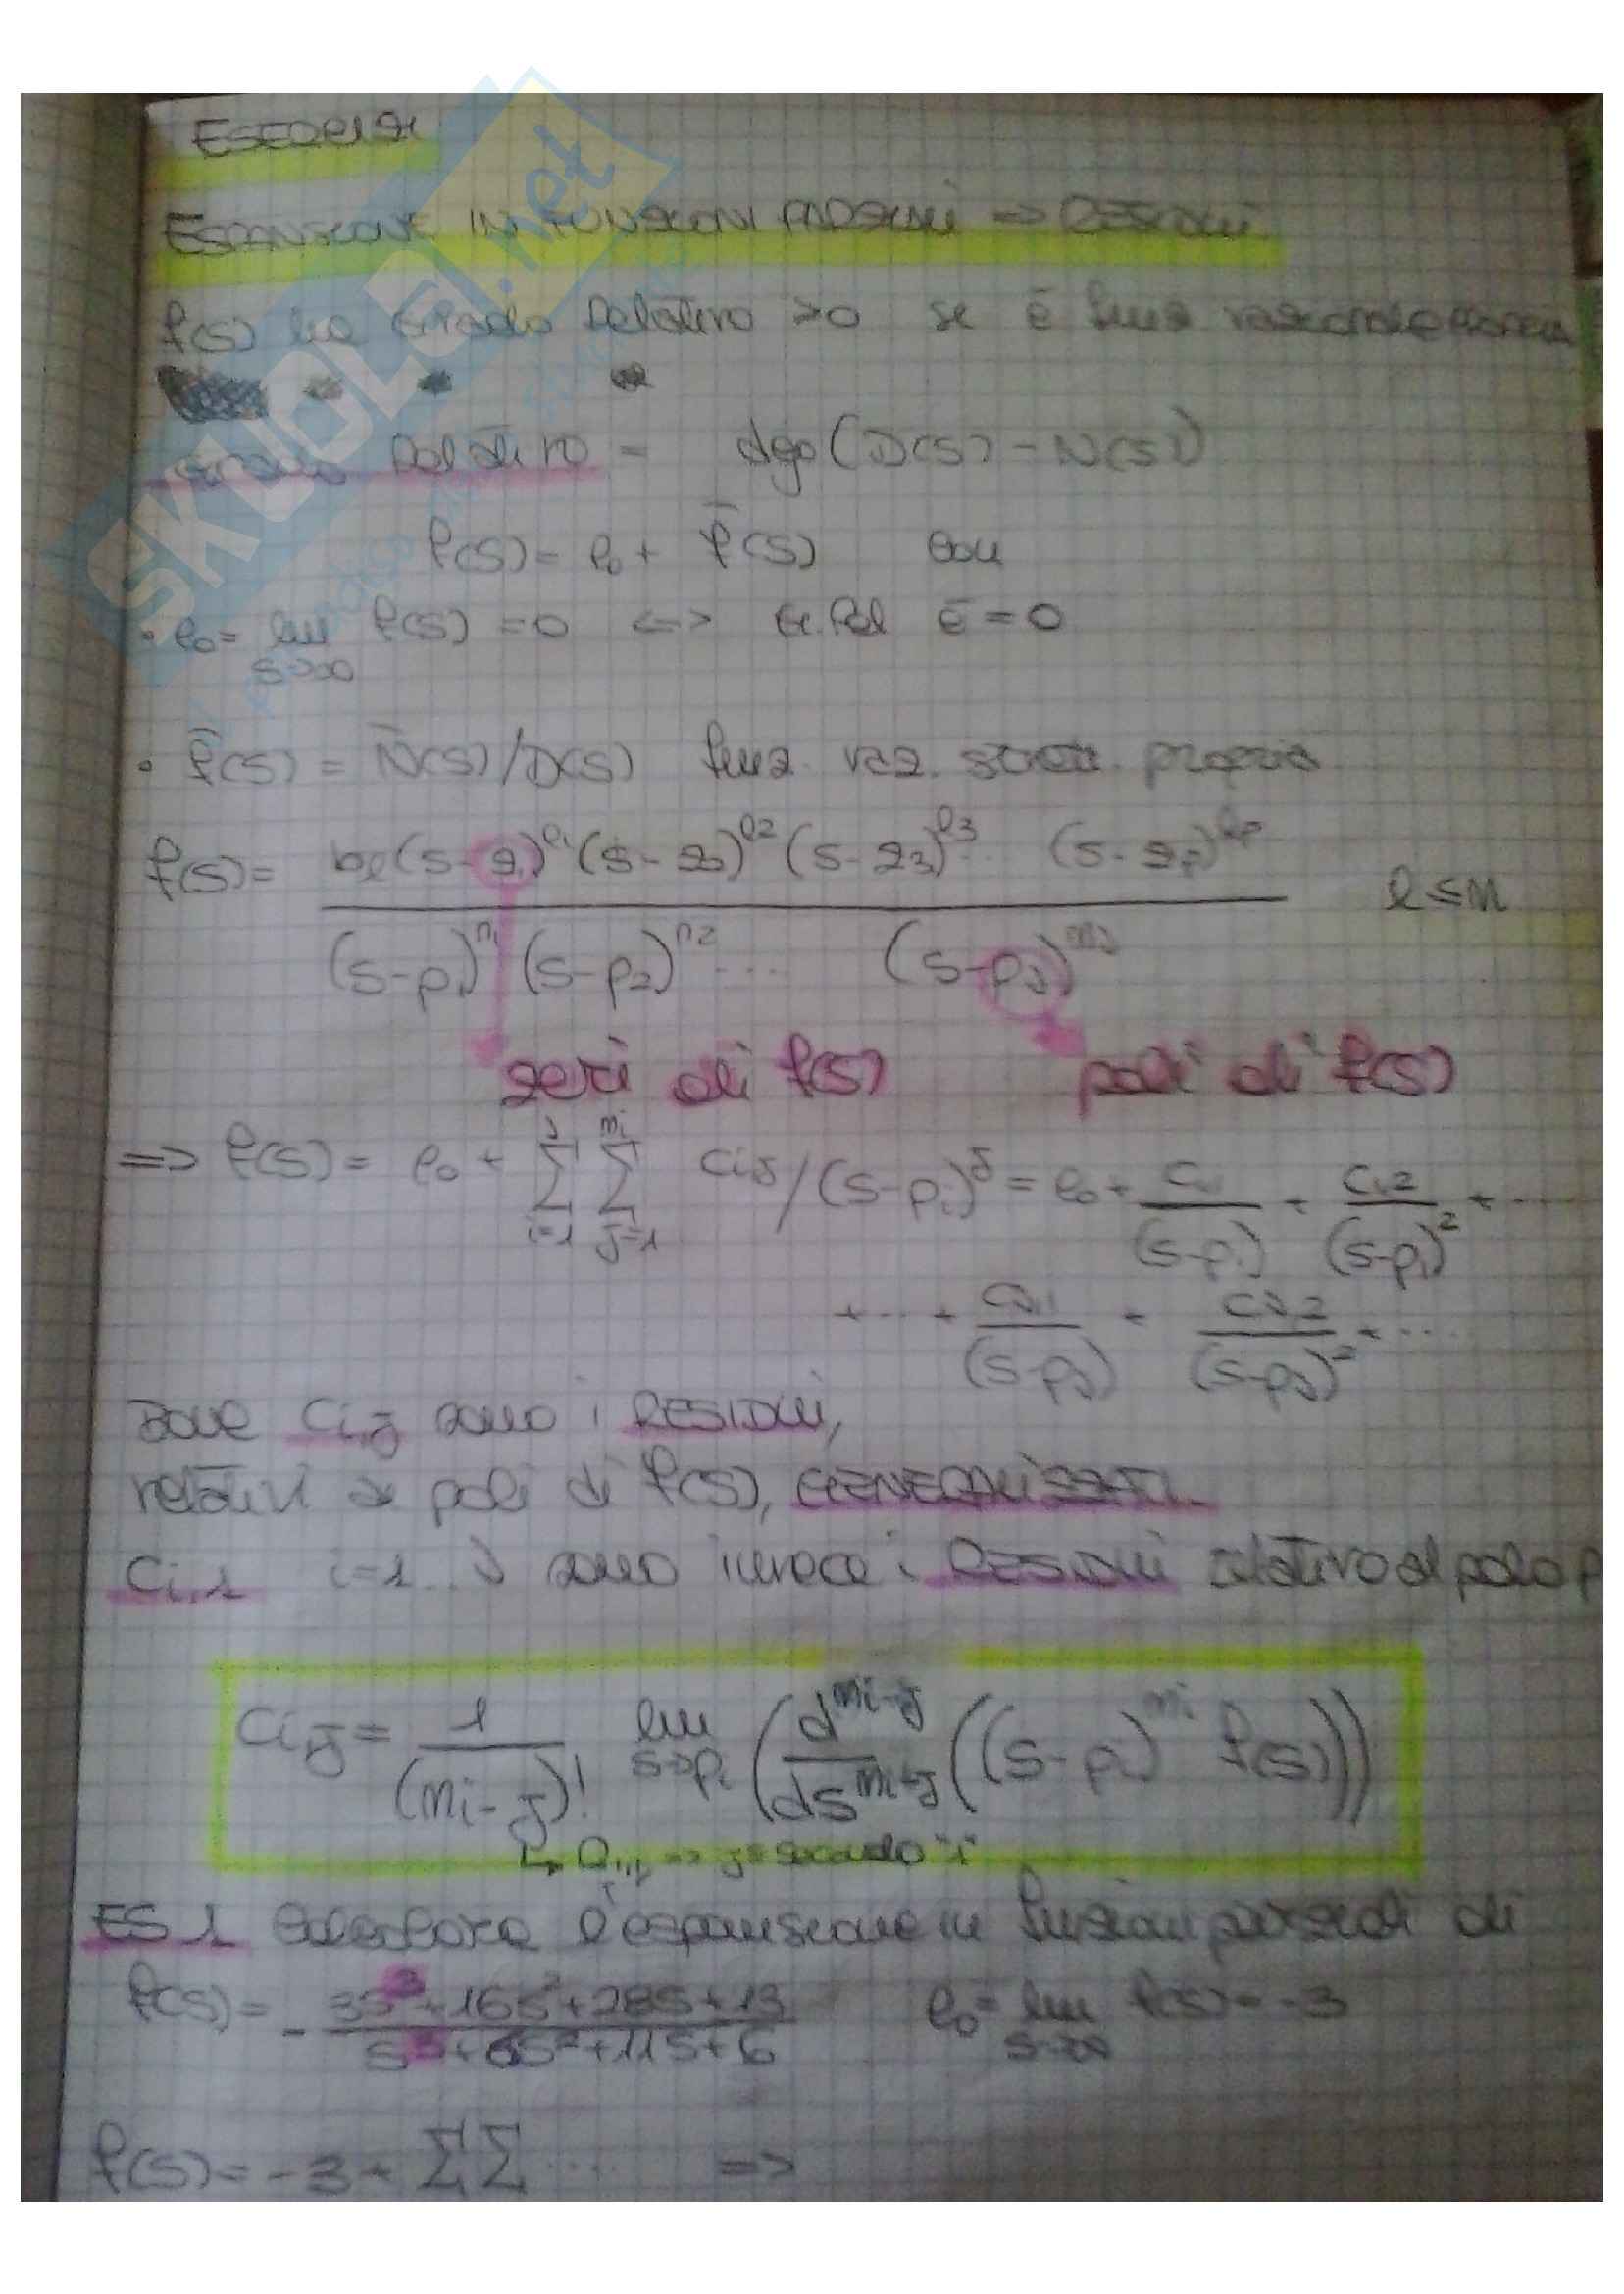 ESERCIZI
ESPANSIONE IN FUNZIONI PARZIALI => RESIDUI
f(s) ha Grado Relativo >0 se è funz razionale propria
Grado Relativo = dgo(D(s) - N(s))
f(s) = f₀ + f̄(s) con
• f₀ = lim f(s) = 0 <=> Gr. Rel è = 0
s->∞
• f̄(s) = N̄(s)/D(s) funz. raz. strett. propria
f(s) = bℓ(s-z₁)^ℓ₁ (s-z₂)^ℓ₂ (s-z₃)^ℓ₃ ... (s-zᵣ)^ℓᵣ ℓ ≤ n
(s-p₁)^n₁ (s-p₂)^n₂ ... (s-pⱼ)^nⱼ
zeri di f(s) poli di f(s)
=> f(s) = f₀ + Σ Σ Ci,j/(s-pi)^j = f₀ + C₁,₁/(s-p₁) + C₁,₂/(s-p₁)² + ...
+ ... + Cj,1/(s-pj) + Cj,2/(s-pj)² + ...
Dove Ci,j sono i RESIDUI,
relativi ai poli di f(s), GENERALIZZATI.
Ci,1 i=1...J sono invece i RESIDUI relativo al polo p
Ci,j = 1/(ni-j)! lim s->pi (d^ni-j/ds^ni-j ((s-pi)^ni f(s)))
secondo "i"
ES 1 Calcolare l'espansione in funzioni parziali di
f(s) = - 3s³+16s²+28s+13 / s³+6s²+11s+6 f₀ = lim s->∞ f(s) = -3
f(s) = -3 + ΣΣ ... =>
SKUOLA.net